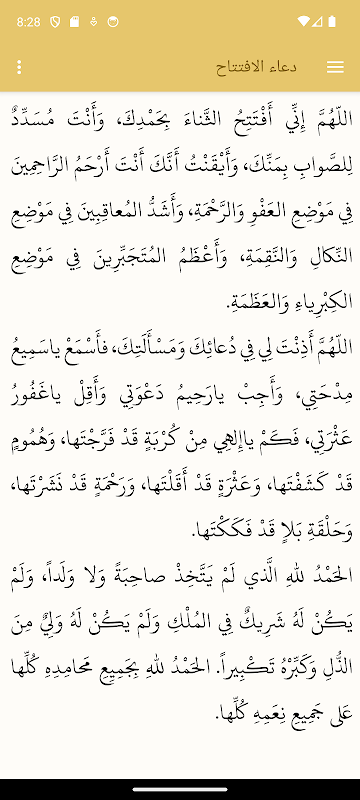 8:28
دعاء الافتتاح
اللّهُمَّ إِنِّي أَفْتَتِحُ الثَّناءَ بِحَمْدِكَ، وَأَنْتَ مُسَدِّدٌ
لِلصَّوابِ بِمَنِّكَ، وَأَيْقَنْتُ أَنَّكَ أَنْتَ أَرْحَمُ الرَّاحِمِينَ
فِي مَوْضِعِ العَفْوِ وَالرَّحْمَةِ، وَأَشَدُّ المُعاقِبِينَ فِي مَوْضِعِ
النَّكالِ وَالنَّقِمَةِ، وَأَعْظَمُ المُتَجَبِّرِينَ فِي مَوْضِعِ
الكِبْرِياءِ وَالعَظَمَةِ.
اللّهُمَّ أَذِنْتَ لِي فِي دُعائِكَ وَمَسْأَلَتِكَ، فأَسْمَعْ ياسَمِيعُ
مِدْحَتِي، وَأَجِبْ يارَحِيمُ دَعْوَتِي وَأَقِلْ ياغَفُورُ
عَثْرَتِي، فَكَمْ ياإِلهِي مِنْ كُرْبَةٍ قَدْ فَرَّجْتَها، وَهُمُومٍ
قَدْ كَشَفْتَها، وَعَثْرَةٍ قَدْ أَقَلْتَها، وَرَحْمَةٍ قَدْ نَشَرْتَها،
وَحَلْقَةِ بَلاٍ قَدْ فَكَكْتَها.
الحَمْدُ للهِ الَّذي لَمْ يَتَّخِذْ صاحِبَةً وَلا وَلَداً، وَلَمْ
يَكُنْ لَهُ شَرِيكٌ فِي المُلْكِ وَلَمْ يَكُنْ لَهُ وَلِيٌّ مِنَ
الذُّلِ وَكَبِّرْهُ تَكْبِيراً. الحَمْدُ للهِ بِجَمِيعِ مَحامِدِهِ كُلِّها
عَلى جَمِيعِ نِعَمِهِ كُلِّها.